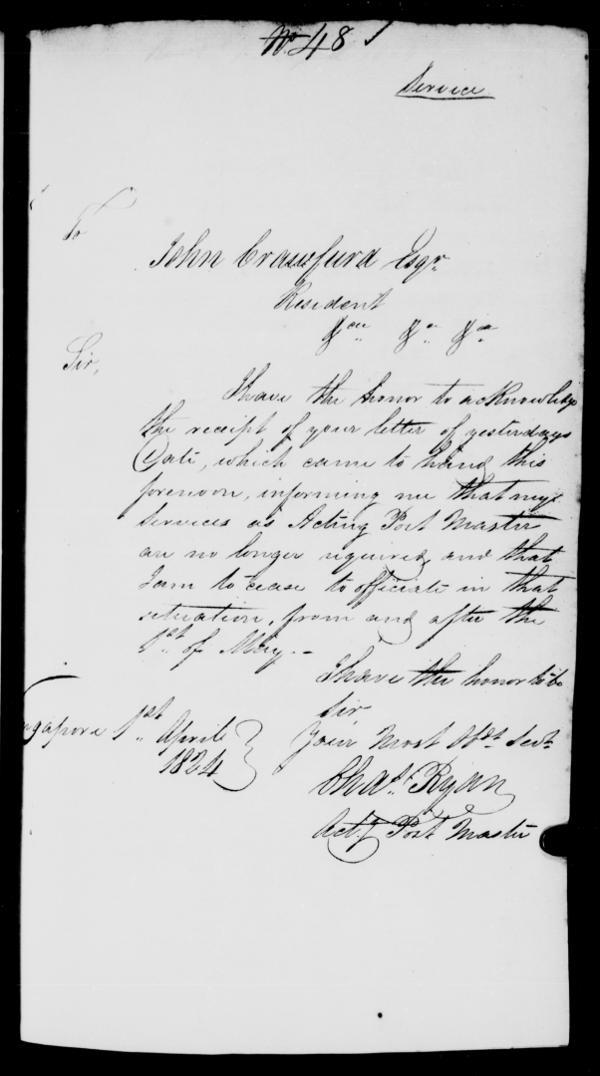 No. 48
Service
To
John Crawfurd Esqr.
Resident
&ca &ca &ca
Sir,
I have the honor to acknowledge
the receipt of your letter of yesterdays
Date, which came to hand this
forenoon, informing me that my
Services as Acting Post Master
are no longer required, and that
I am to cease to officiate in that
situation, from and after the
1st of May.-
I have the honor to be
Sir
Your Most Obdt Servt
Singapore 1st April
1824
Chas. Ryan
Actg Post Master